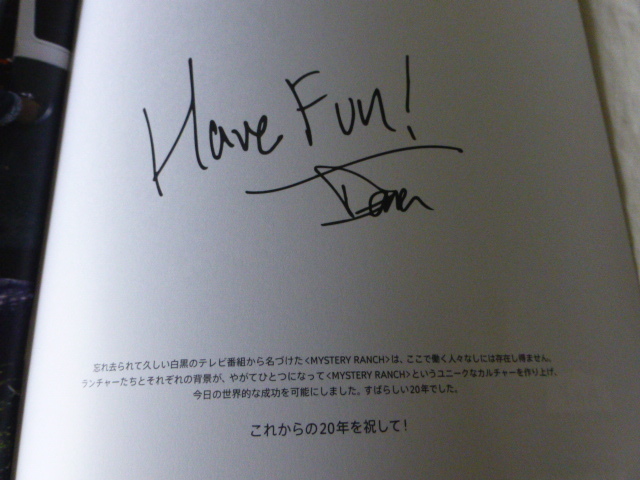 Have Fun!
忘れ去られて久しい白黒のテレビ番組から名づけた<MYSTERY RANCH>は、ここで働く人々なしには存在し得ません。
ランチャーたちとそれぞれの背景が、やがてひとつになって<MYSTERY RANCH>というユニークなカルチャーを作り上げ、
今日の世界的な成功を可能にしました。すばらしい20年でした。
これからの20年を祝して!